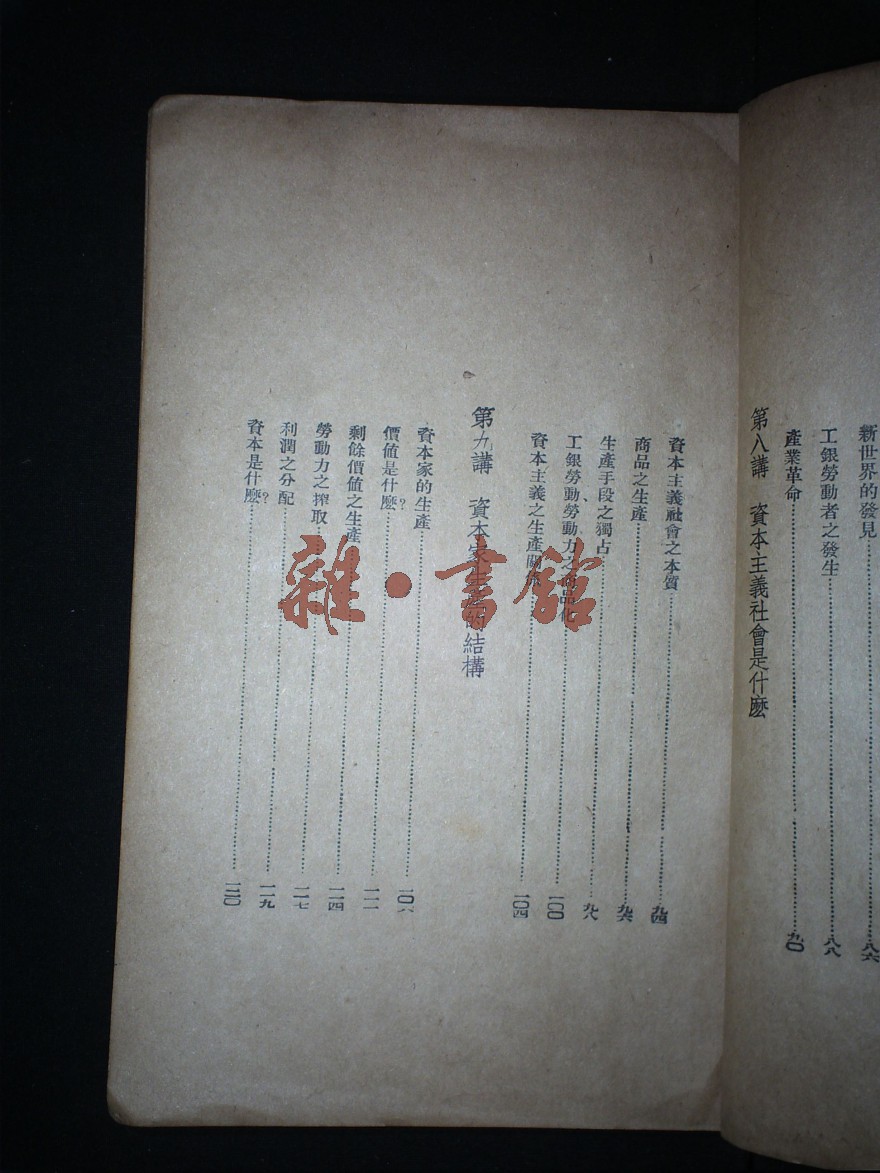 新世界的發見……八六
工銀勞動者之發生……八八
產業革命……九〇
第八講 資本主義社會是什麽
資本主義社會之本質……九四
商品之生產……九六
生產手段之獨占……九八
工銀勞動、勞動力之商品化……一〇〇
資本主義之生產關係……一〇四
第九講 資本家生產的結構
資本家的生產……一〇六
價値是什麽?……一一一
剩餘價値之生產……一一四
勞動力之搾取……一一七
利潤之分配……一一九
資本是什麽?……一二〇
雜·書館